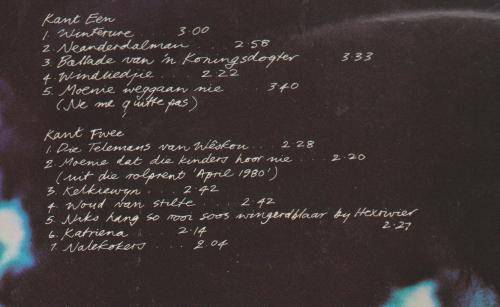 Kant Een
1. Winterure 3.00
2. Neanderdalman . . . . 2.58
3. Ballade van 'n Koningsdogter 3.33
4. Windliedjie . . . 2.22
5. Moenie weggaan nie . 3.40
(Ne me quitte pas)
Kant Twee
1. Die Telemans van Wêskou . . . 2.28
2. Moenie dat die kinders hoor nie . . . . 2.20
(uit die rolprent 'April 1980')
3. Kelkiewyn . . . 2.42
4. Woud van stilte . . . 2.42
5. Niks hang so rooi soos wingerdblaar by Hexrivier
2.27
6. Katriena . . . . 2.14
7. Nalekokers . . . . 2.04